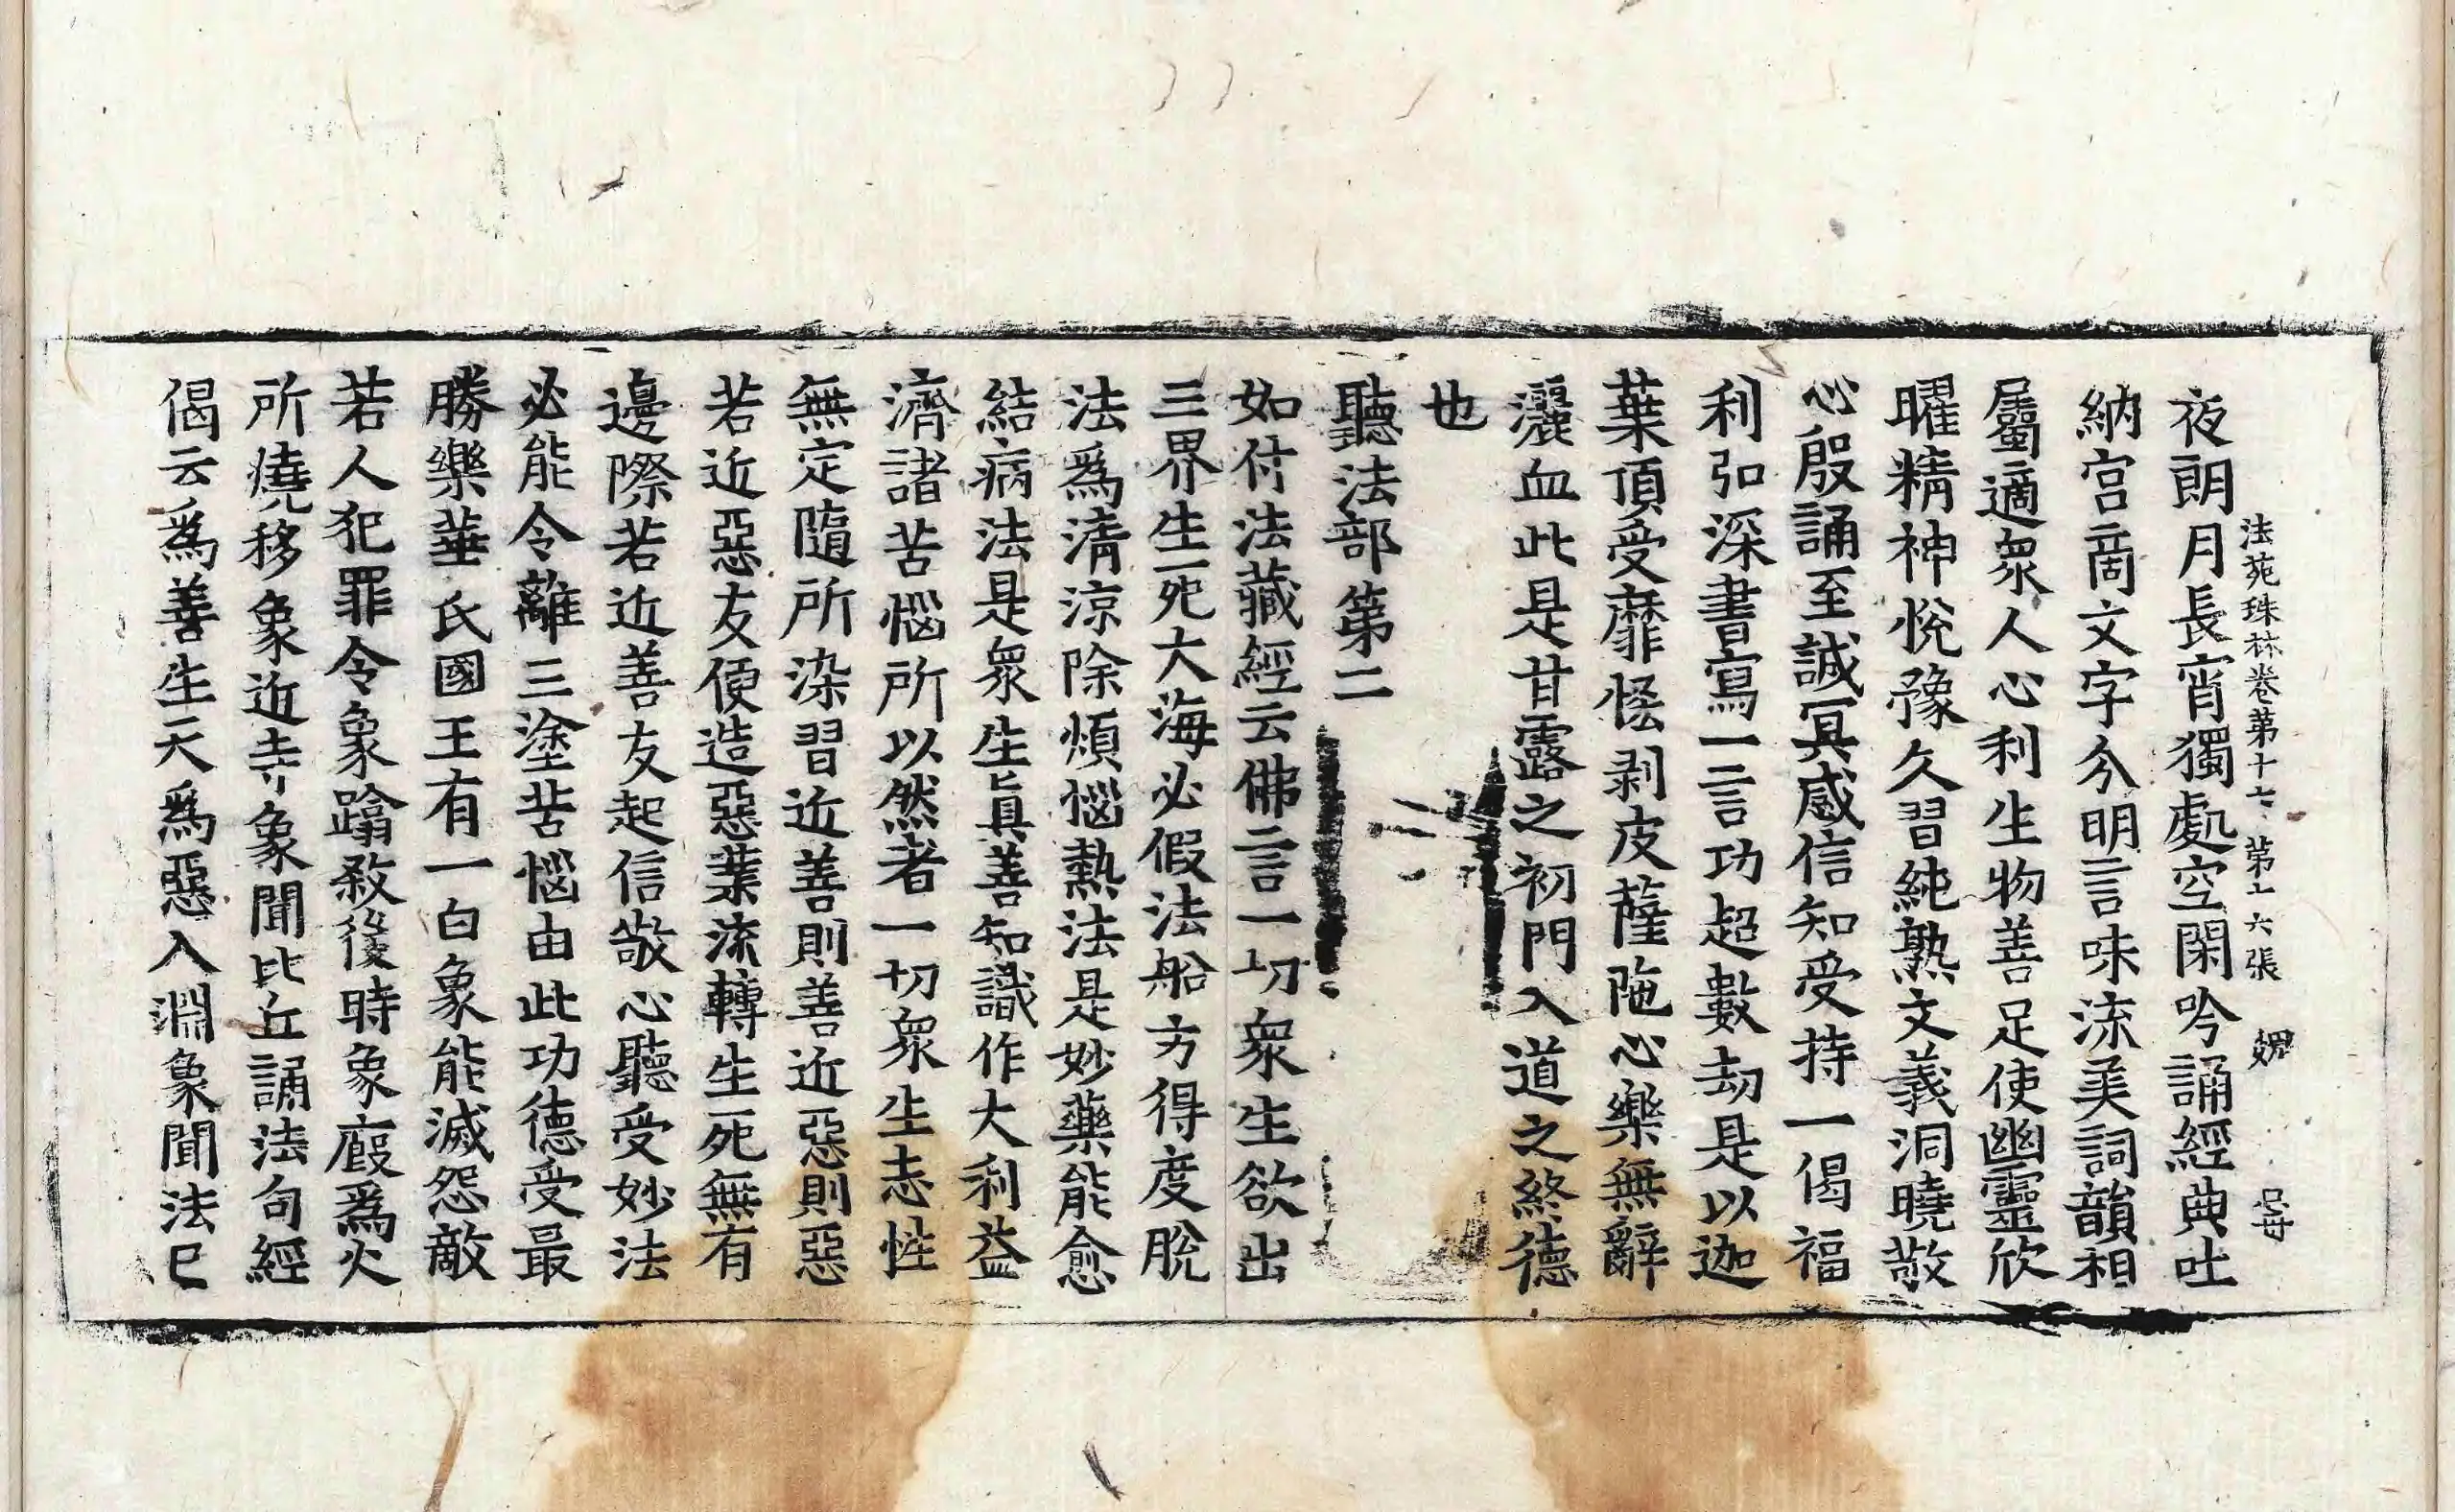 法苑珠林卷第十七 第十六張
夜朗月長宵獨處空閑吟誦經典吐
納宮啇文字分明言味流美詞韻相
屬適衆人心利生物善足使幽靈欣
曜精神悅豫久習純熟文義洞曉敬
心殷誦至誠冥感信知受持一偈福
利弘深書寫一言功超數劫是以迦
葉頂受靡恡剥皮薩陁心樂無辭
灑血此是甘露之初門入道之終德
也
聽法部第二
如付法藏經云佛言一切衆生欲出
三界生死大海必假法船方得度脫
法爲淸涼除煩惱熱法是妙藥能愈
結病法是衆生眞善知識作大利益
濟諸苦惱所以然者一切衆生志性
無定隨所染習近善則善近惡則惡
若近惡友便造惡業流轉生死無有
邊際若近善友起信敬心聽受妙法
必能令離三塗苦惱由此功德受最
勝樂華氏國王有一白象能滅怨敵
若人犯罪令象蹹敎後時象廄爲火
所燒移象近寺象聞比丘誦法句經
偈云爲善生天爲惡入淵象聞法已